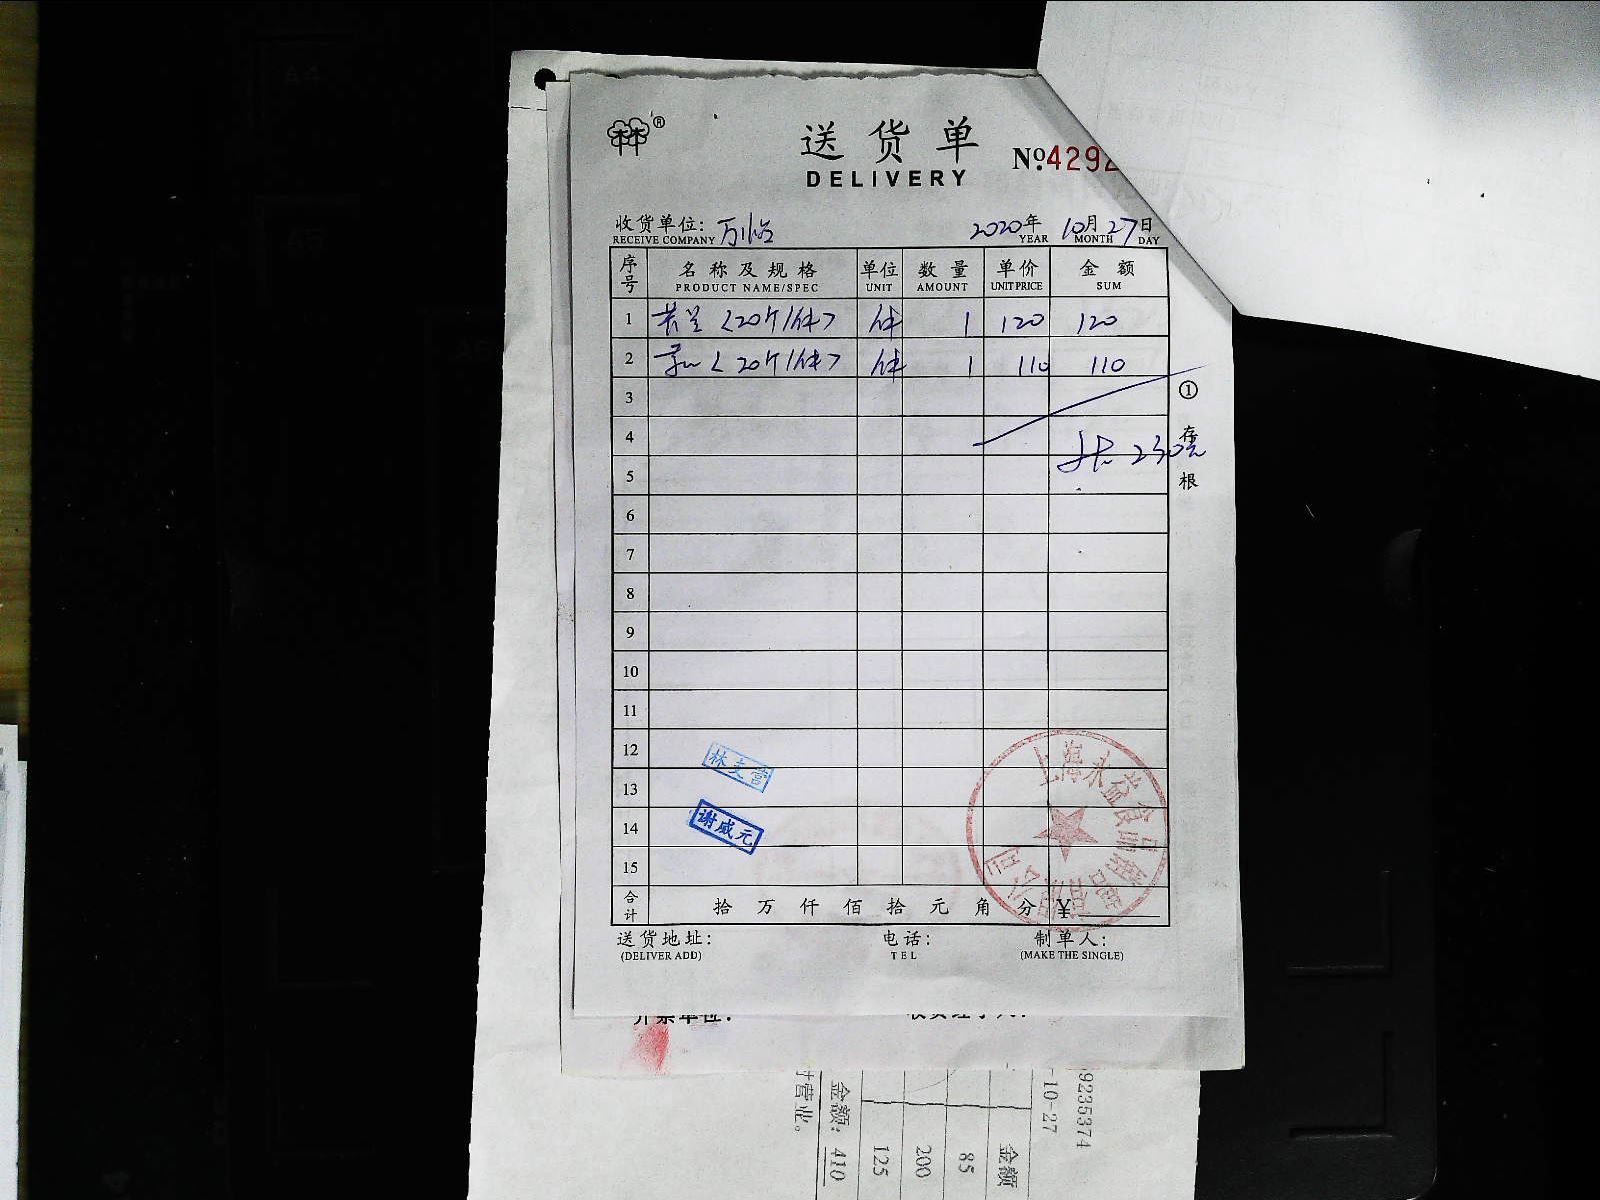 ® 送货单 №4292
DELIVERY
收货单位: 2020年 10月 27日
RECEIVE COMPANY YEAR MONTH DAY
序号 名称及规格 单位 数量 单价 金额
PRODUCT NAME/SPEC UNIT AMOUNT UNIT PRICE SUM
1 <20个/件> 件 1 120 120
2 <20个/件> 件 1 110 110
3
4
共 230元
5
6
7
8
9
10
11
12
13
14
15
①存根
林支营
谢咸元
上海永益食品销售有限公司
合计 拾 万 仟 佰 拾 元 角 分 ¥
送货地址: 电话: 制单人:
(DELIVER ADD) TEL (MAKE THE SINGLE)
开票单位:
9235374
-10-27
金额
85
200
125
金额: 410
营业。